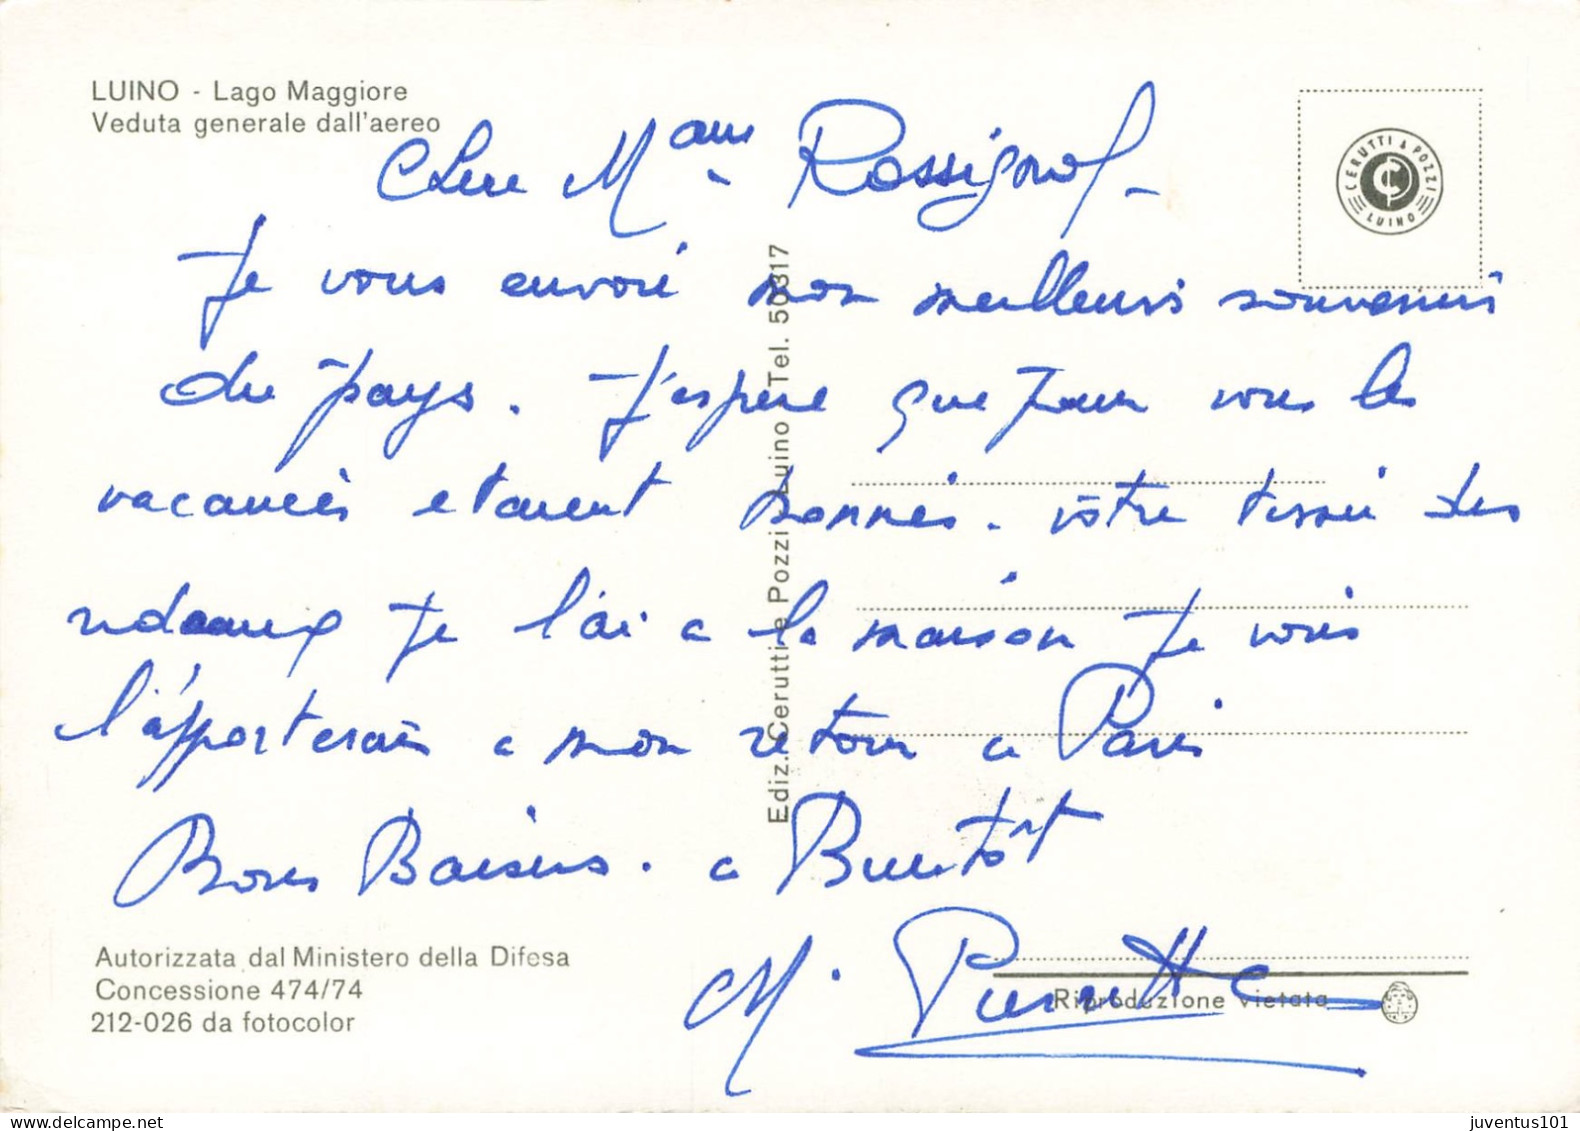 LUINO - Lago Maggiore
Veduta generale dall'aereo
CERUTTI & POZZI
LUINO
Chere Mame Rossignol -
Je vous envoié mon meilleurs souvenirs
du pays. J'espere que pour vous les
vacancès etaient bonnés. vôtre tissu des
ridaux Je l'ai a la maison Je vous
l'apporterais a mon retour a Paris
Bons Baisers. a Bientôt
M. Pierrette
Ediz. Cerutti e Pozzi - Luino - Tel. 50317
Autorizzata dal Ministero della Difesa
Concessione 474/74
212-026 da fotocolor
Riproduzione vietata
juventus101